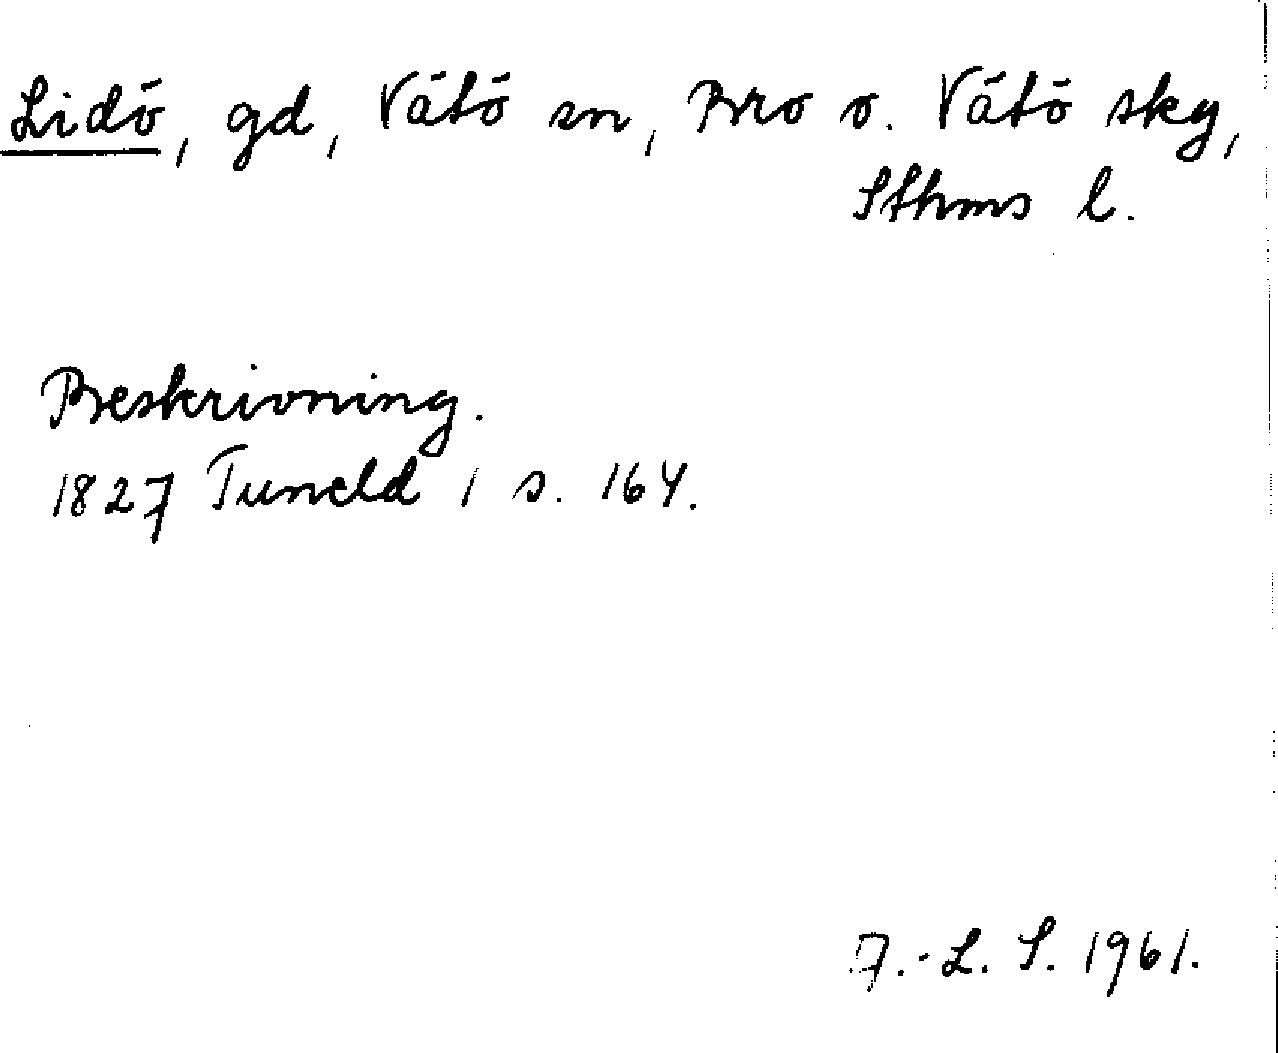 Lidö, gd, Vätö sn, Bro o. Vätö skg,
Sthms l.
Beskrivning.
1827 Tuneld 1 s. 164.
7.-L. S. 1961.